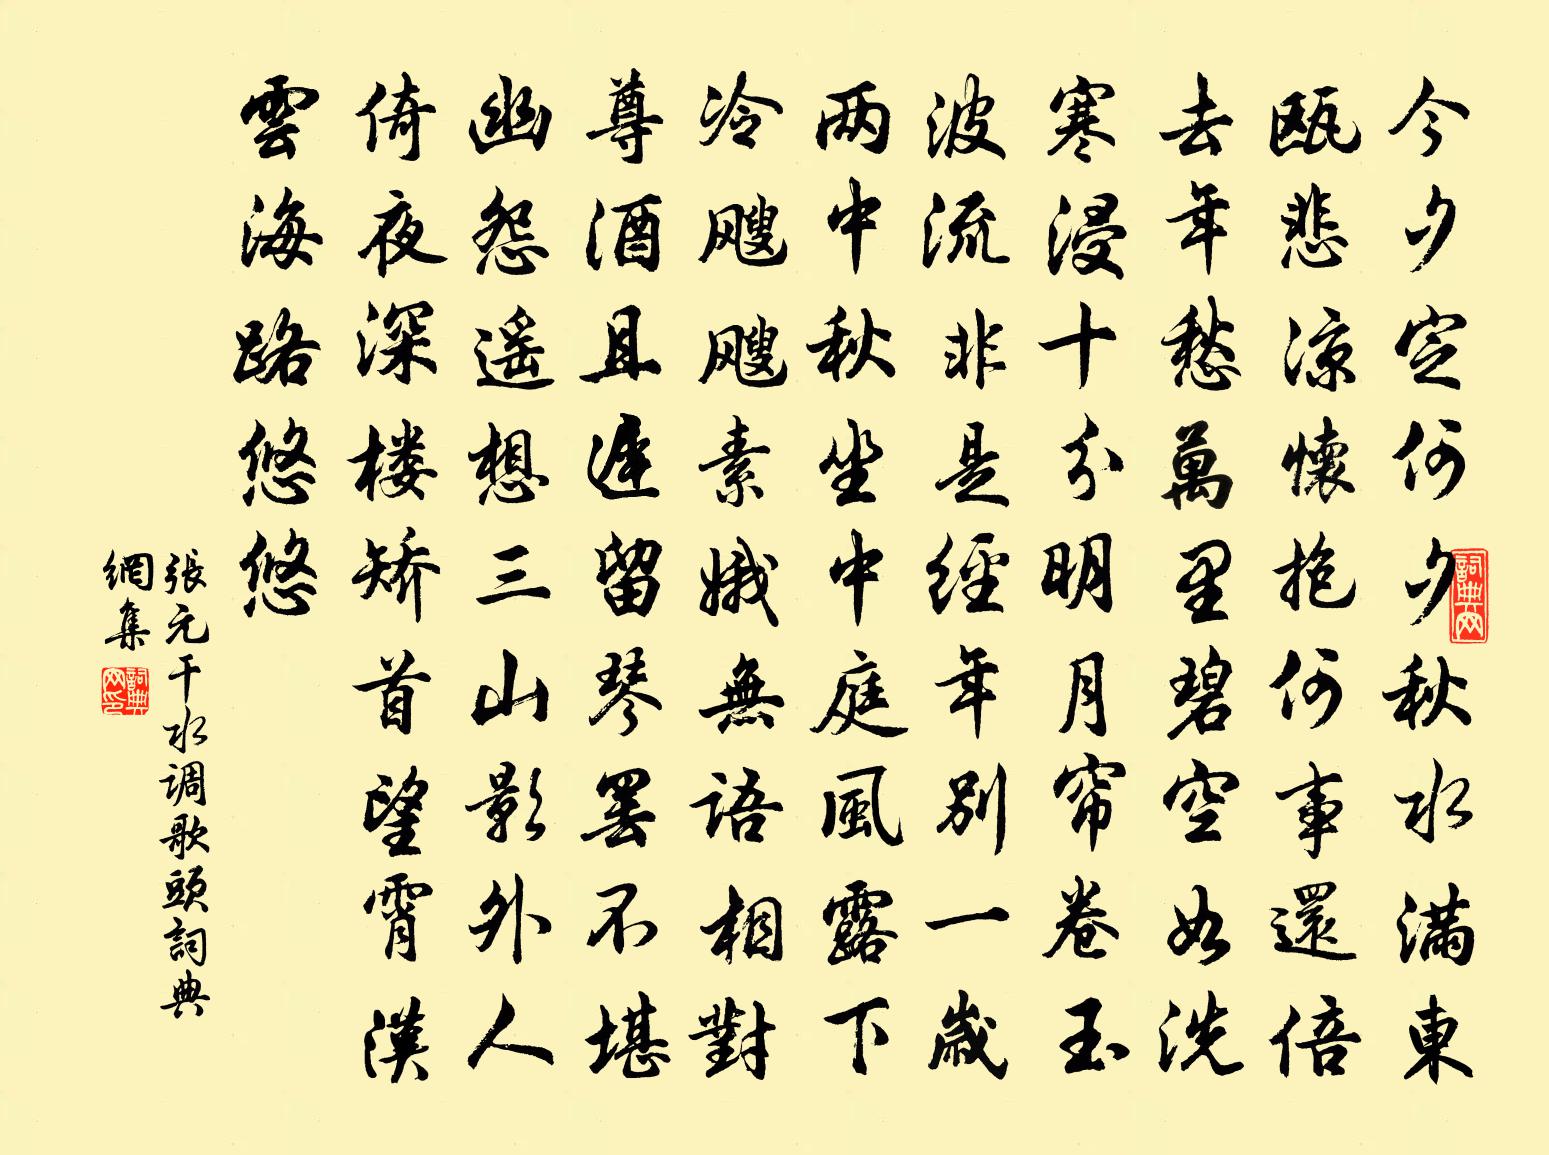 今夕定何夕秋水满東
瓯悲凉懷抱何事還倍
去年愁萬里碧空如洗
寒浸十分明月帘卷玉
波流非是經年别一歲
两中秋坐中庭風露下
冷飕飕素娥無語相對
尊酒且遲留琴罢不堪
幽怨遥想三山影外人
倚夜深楼矫首望霄漢
雲海路悠悠
張元干水调歌頭詞典
網集
詞典网
詞典网印